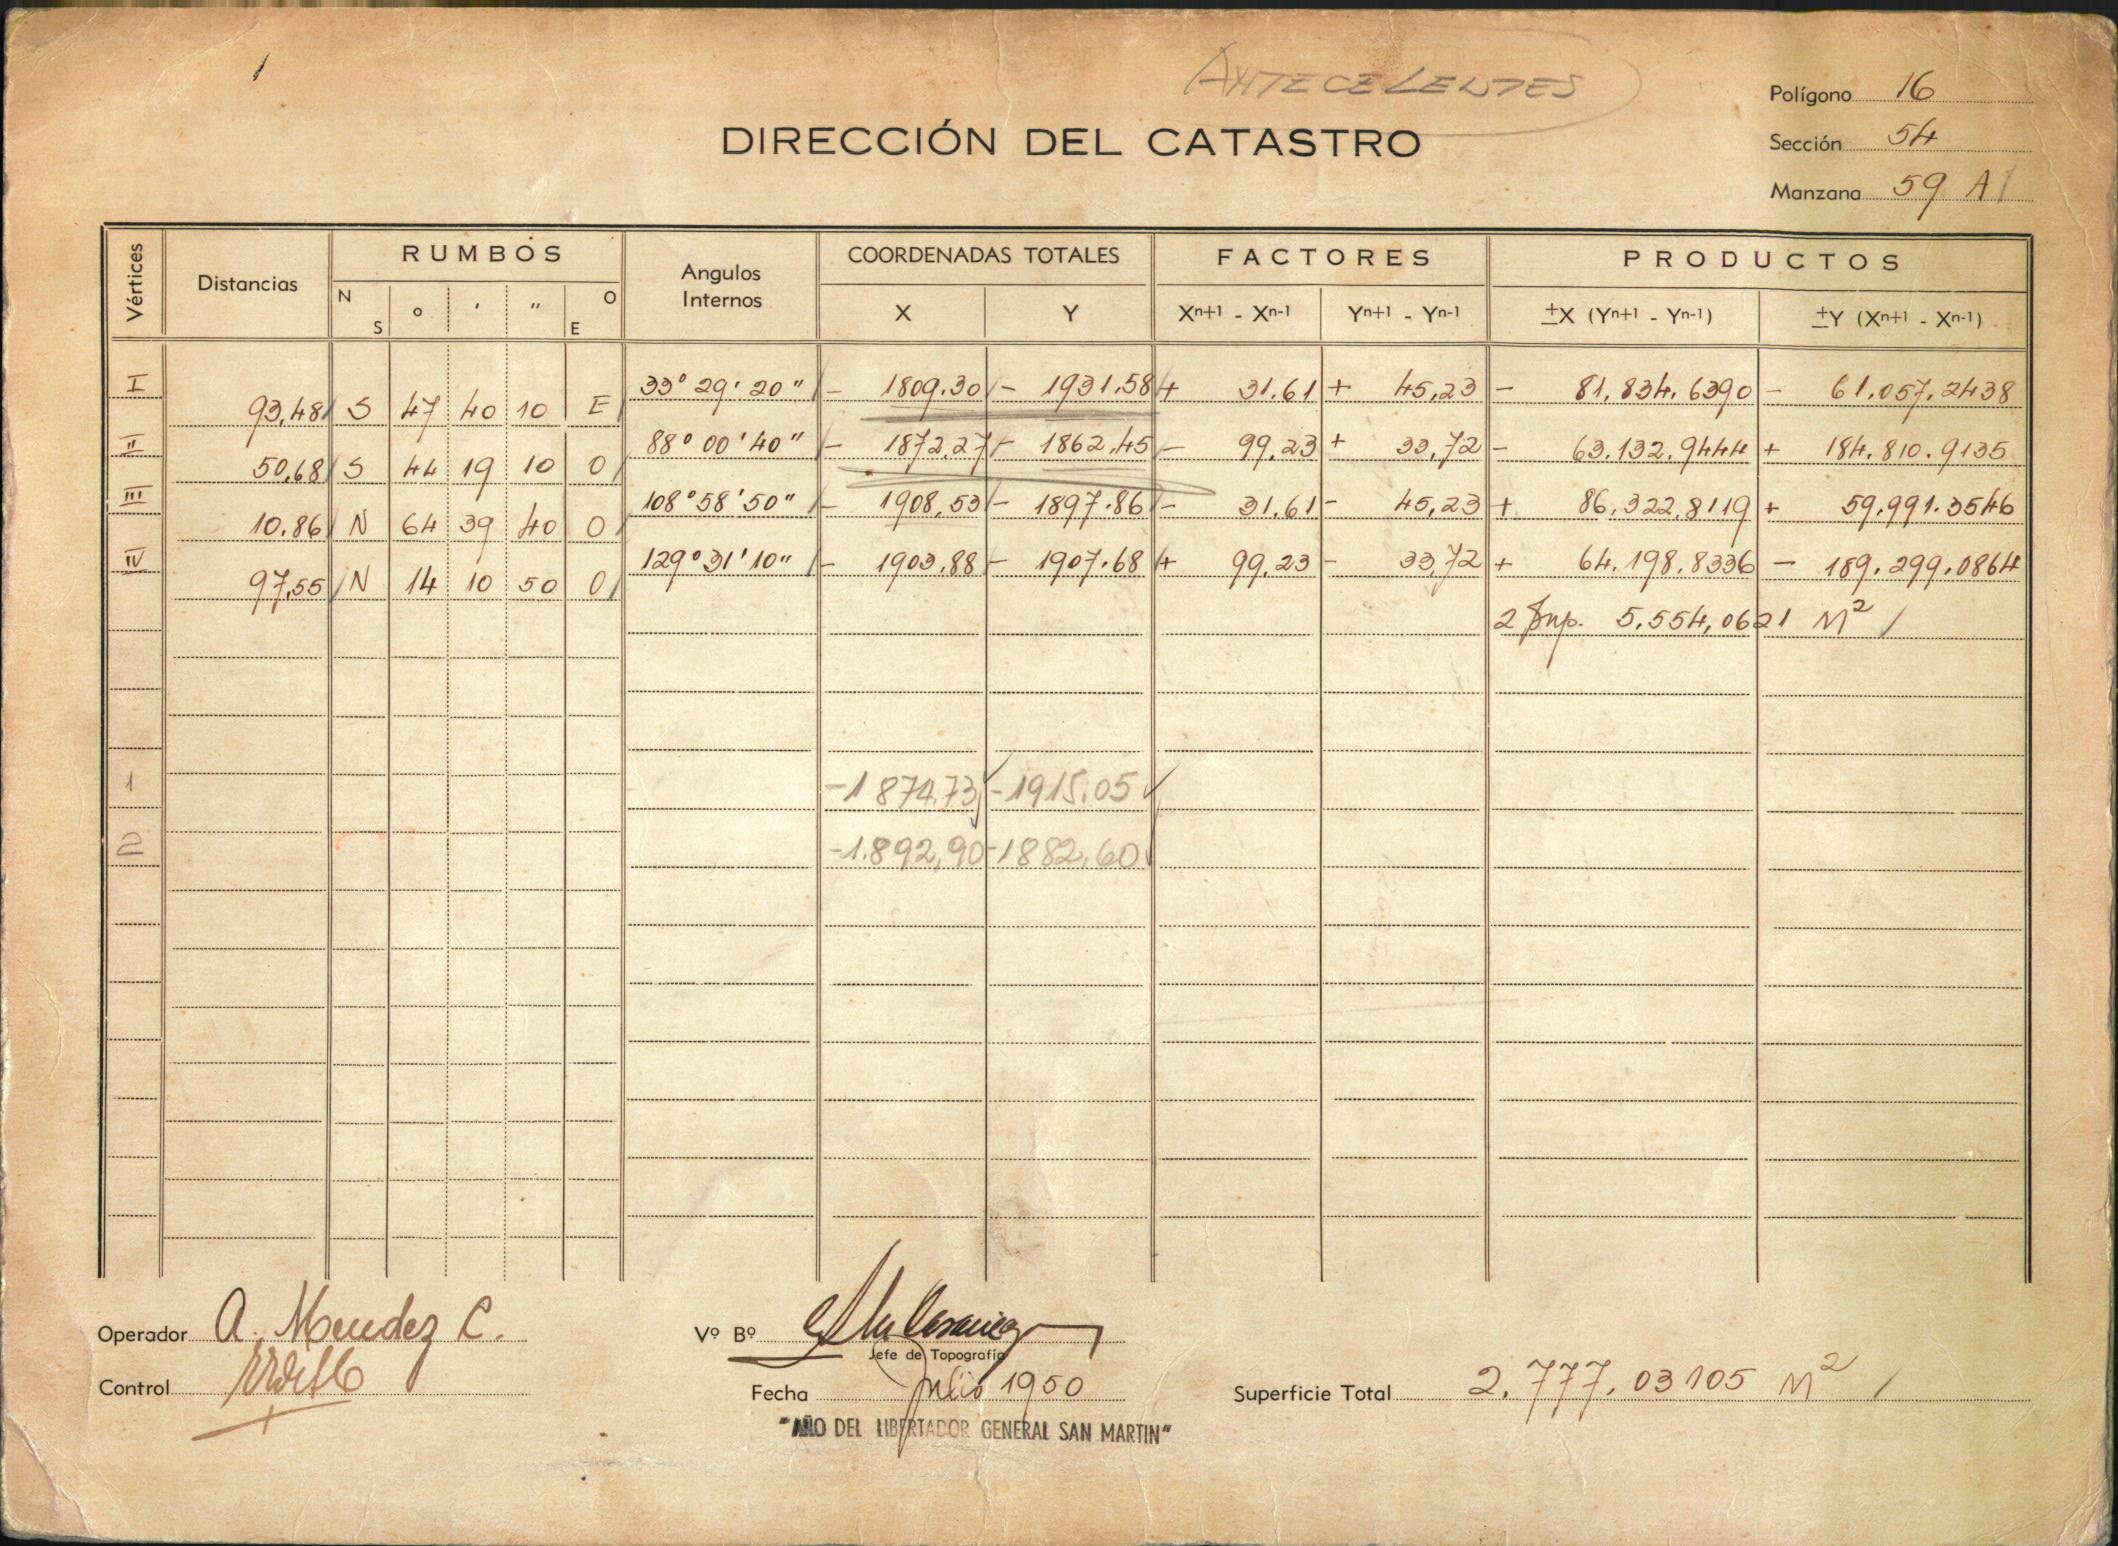 ANTECEDENTES
DIRECCIÓN DEL CATASTRO
Polígono 16
Sección 54
Manzana 59 A
Vértices Distancias RUMBOS Angulos Internos COORDENADAS TOTALES FACTORES PRODUCTOS
N S ° ' " O E X Y Xn+1 - Xn-1 Yn+1 - Yn-1 ±X (Yn+1 - Yn-1) ±Y (Xn+1 - Xn-1)
I 33° 29' 20" - 1809.30 - 1931.58 + 31.61 + 45,23 - 81.834.6390 - 61.057.2438
93,48 S 47 40 10 E
II 88° 00' 40" - 1872.27 - 1862.45 - 99.23 + 33,72 - 63.132.9444 + 184.810.9135
50,68 S 44 19 10 O
III 108° 58' 50" - 1908,53 - 1897.86 - 31.61 - 45,23 + 86.322.8119 + 59.991.3546
10.86 N 64 39 40 O
IV 129° 31' 10" - 1903.88 - 1907.68 + 99.23 - 33,72 + 64.198.8336 - 189.299.0864
97,55 N 14 10 50 O
2 Sup. 5.554,0621 M²
1 -1874,73 -1915.05
2 -1.892,90 -1882,60
Operador A. Mendez C.
Control
Vº Bº
Jefe de Topografía
Fecha Julio 1950
Superficie Total 2.777.03105 M²
"AÑO DEL LIBERTADOR GENERAL SAN MARTIN"